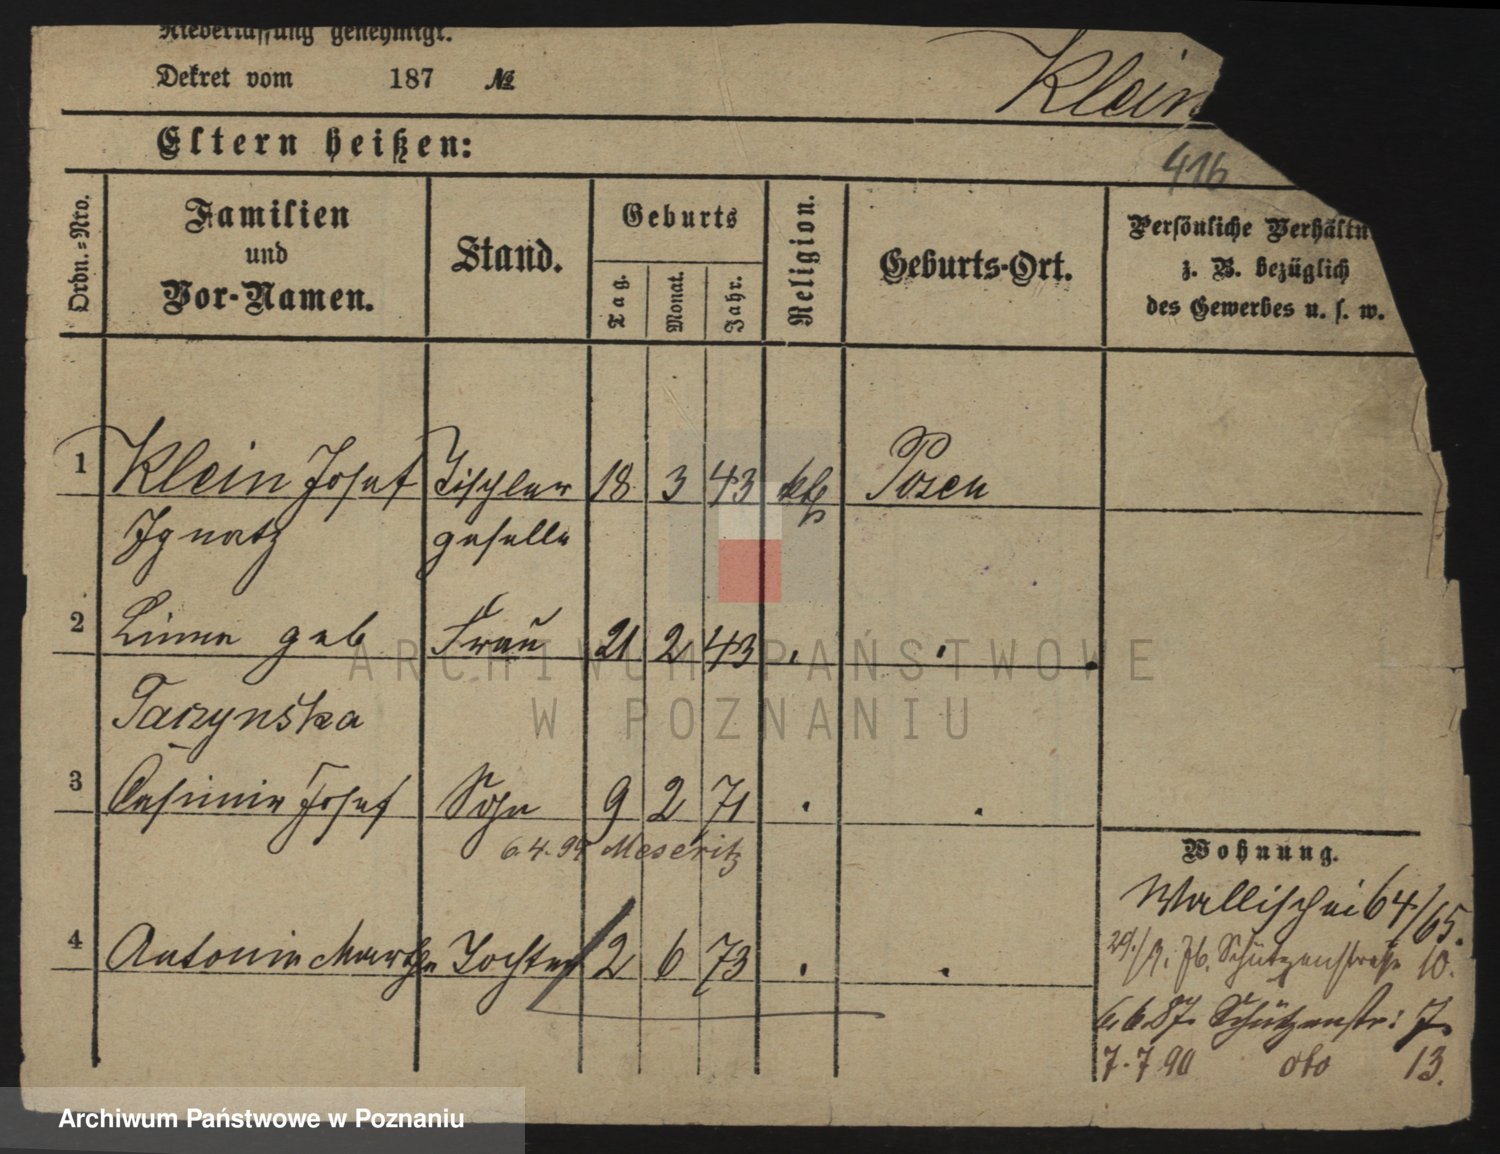 Niederlassung genehmigt.
Dekret vom 187 №
Klein
416
Eltern heißen:
Ordn.=Nro.
Familien
und
Vor-Namen.
Stand.
Geburts
Tag.
Monat.
Jahr.
Religion.
Geburts-Ort.
Persönliche Verhältn
z. B. bezüglich
des Gewerbes u. s. w.
1 Klein Josef Tischler 18 3 43 kth Posen
Ignatz geselle
2 geb Frau 21 2 43 . .
Taczynska
3 Casimir Josef Sohn 9 2 71 . .
6.4.94 Meseritz
4 Antonie Martha Tochter 2 6 73 . .
Wohnung.
Wallischei 64/65.
29./9. 76. Schützenstrasse 10.
6.6.87. Schützenstr: 7.
7.7 90 dto 13.
ARCHIWUM PAŃSTWOWE
W POZNANIU
Archiwum Państwowe w Poznaniu